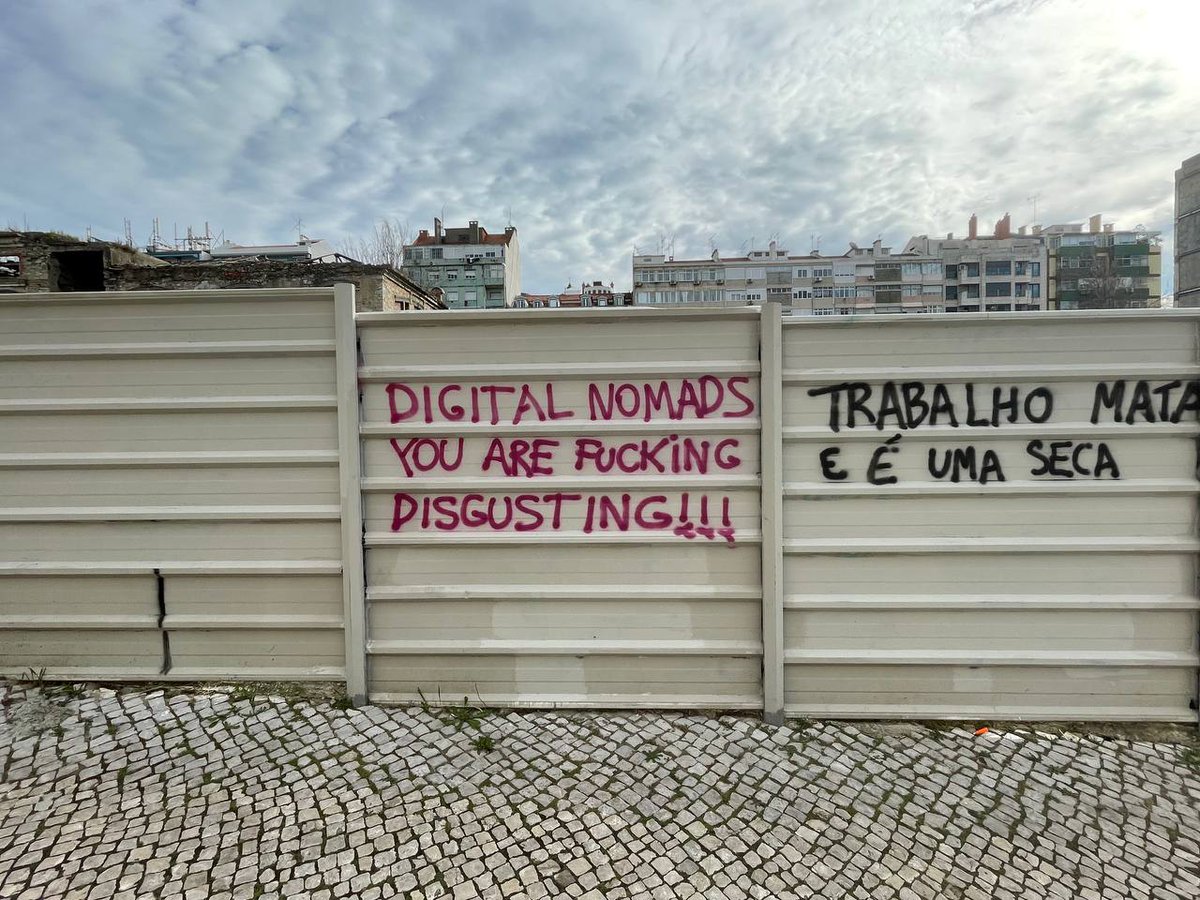 DIGITAL NOMADS
YOU ARE FUCKiNG
DISGUSTING!!!
TRABALHO MATA
E É UMA SECA